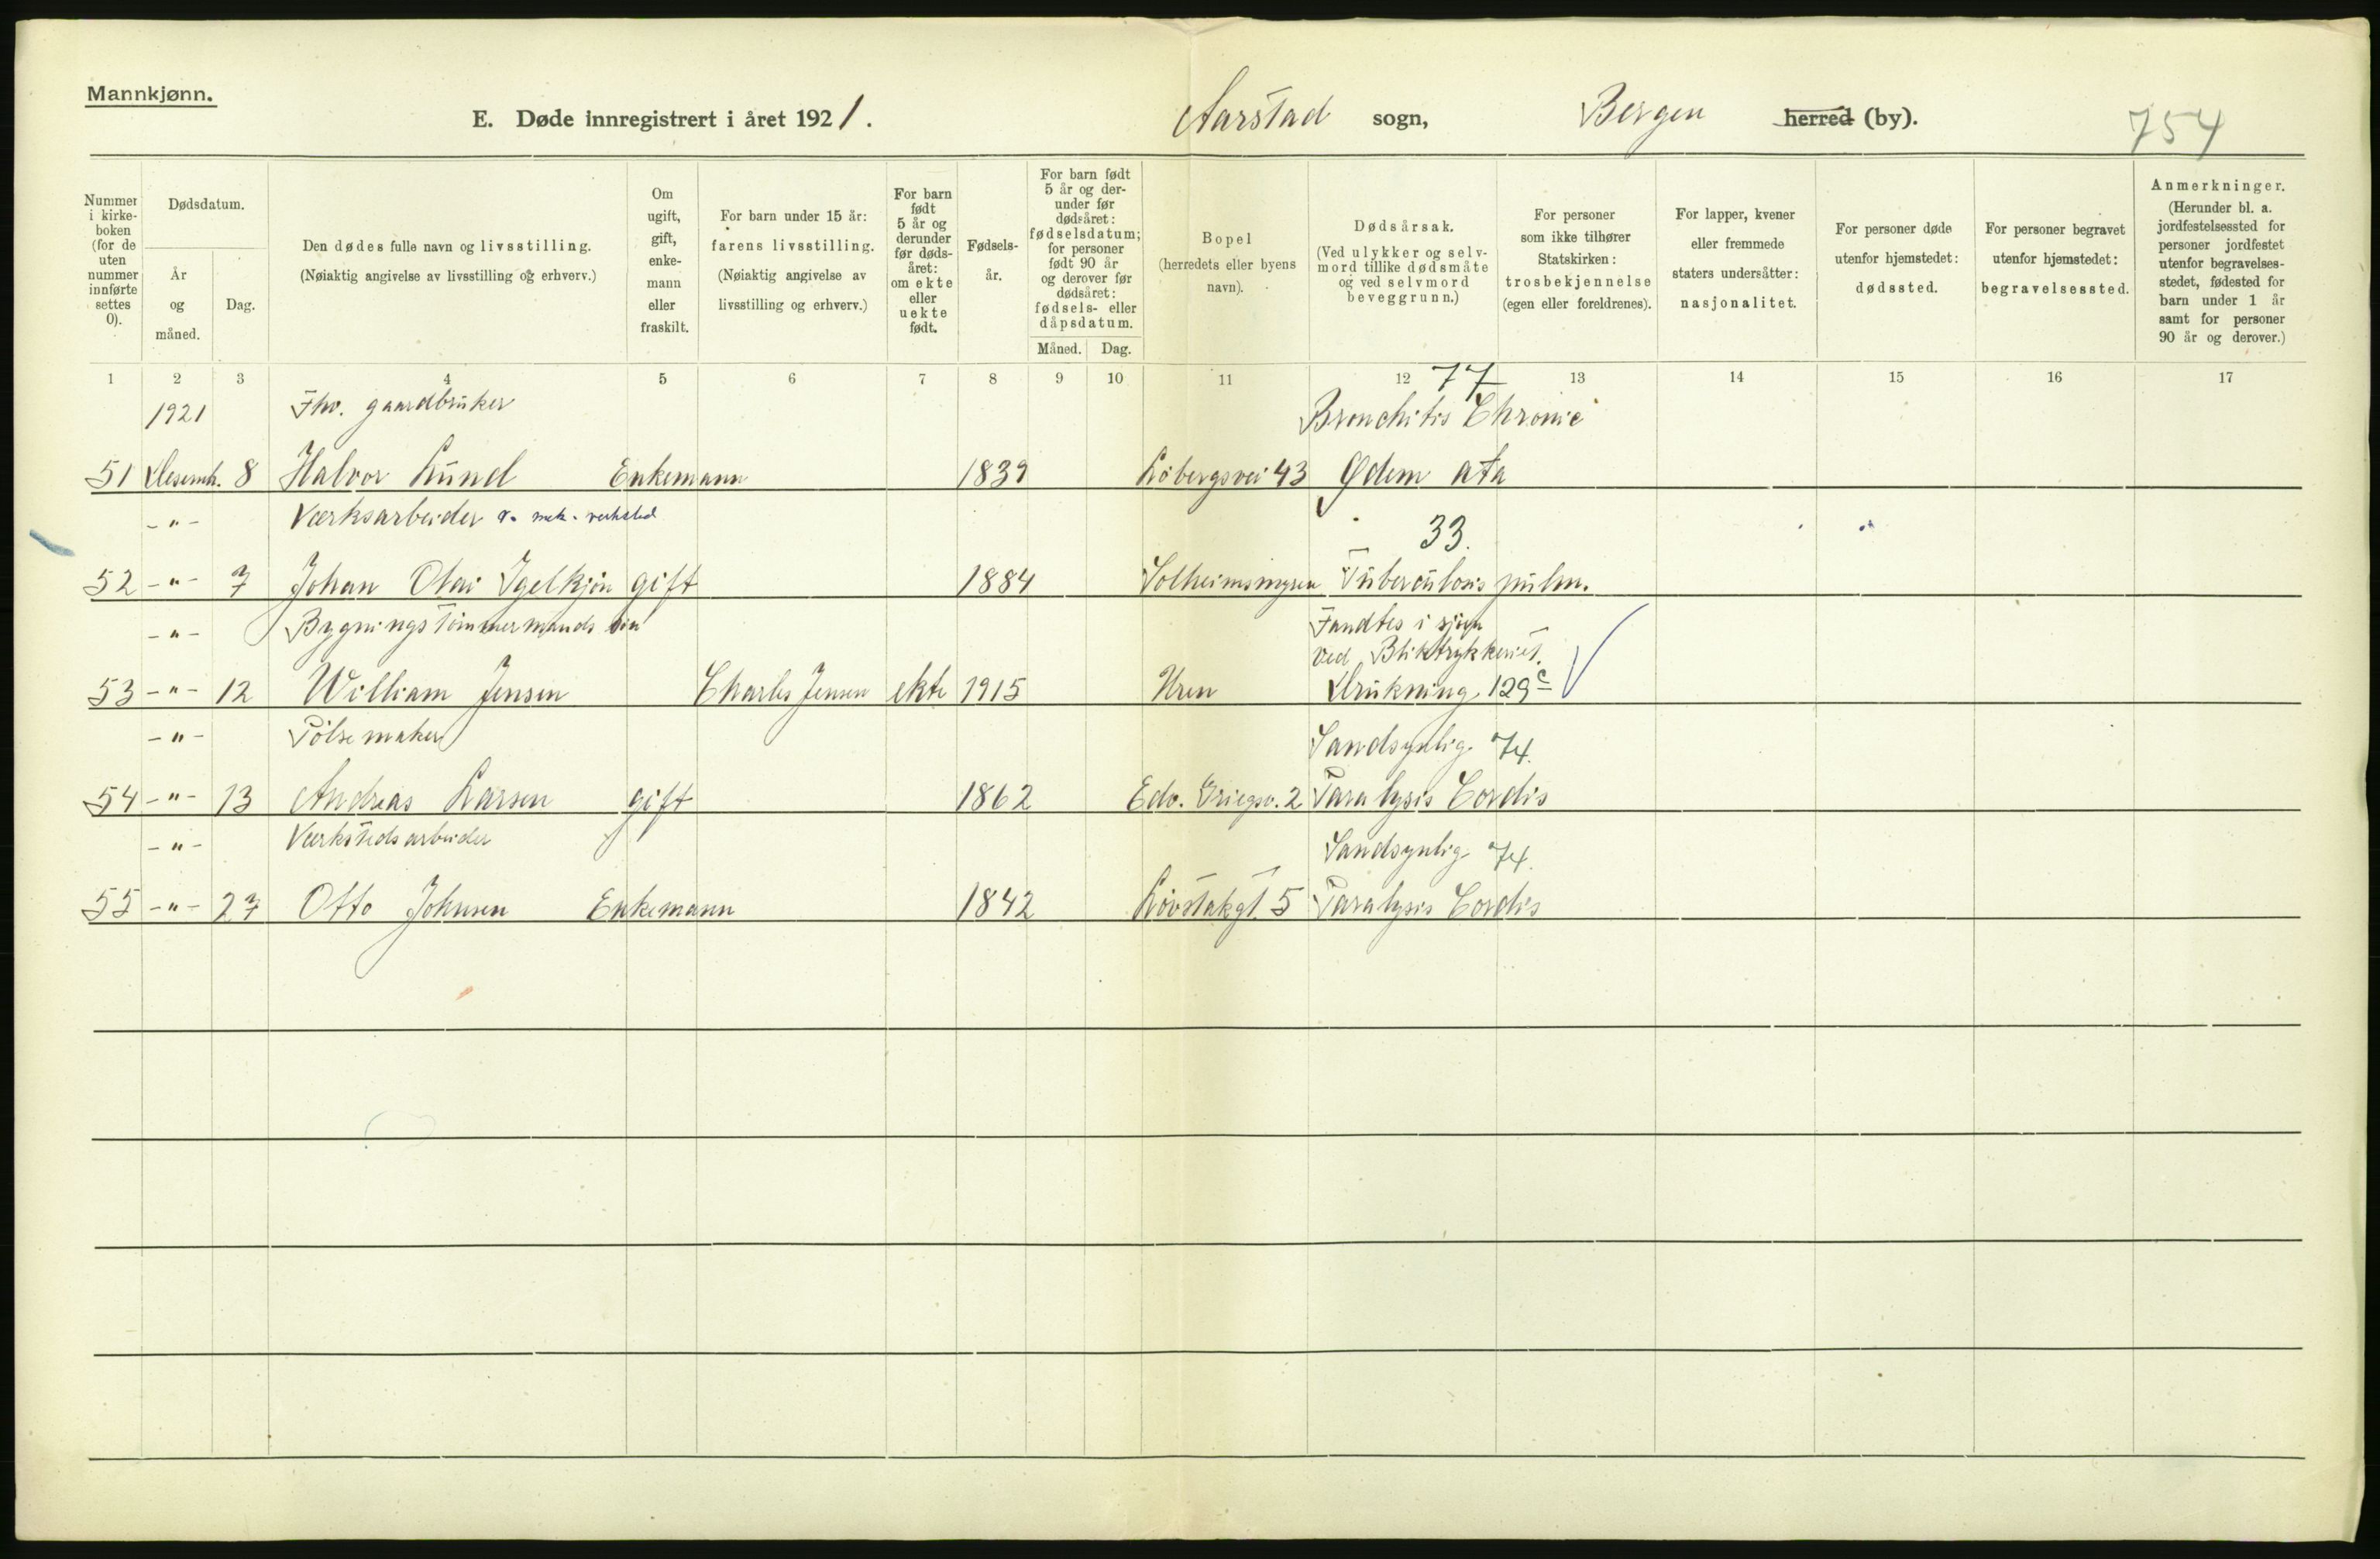 Mannkjønn.
E. Døde innregistrert i året 1921.
Aarstad sogn, Bergen herred (by).
754
Nummer i kirkeboken (for de uten nummer innførte settes 0).
Dødsdatum.
År og måned.
Dag.
Den dødes fulle navn og livsstilling.
(Nøiaktig angivelse av livsstilling og erhverv.)
Om ugift, gift, enkemann eller fraskilt.
For barn under 15 år:
farens livsstilling.
(Nøiaktig angivelse av livsstilling og erhverv.)
For barn født 5 år og derunder før dødsåret: om ekte eller uekte født.
Fødselsår.
For barn født 5 år og derunder før dødsåret: fødselsdatum; for personer født 90 år og derover før dødsåret: fødsels- eller dåpsdatum.
Måned. Dag.
Bopel
(herredets eller byens navn).
Dødsårsak.
(Ved ulykker og selvmord tillike dødsmåte og ved selvmord beveggrunn.)
For personer som ikke tilhører Statskirken:
trosbekjennelse
(egen eller foreldrenes).
For lapper, kvener eller fremmede staters undersåtter:
nasjonalitet.
For personer døde utenfor hjemstedet:
dødssted.
For personer begravet utenfor hjemstedet:
begravelsessted.
Anmerkninger.
(Herunder bl. a. jordfestelsessted for personer jordfestet utenfor begravelsesstedet, fødested for barn under 1 år samt for personer 90 år og derover.)
1 2 3 4 5 6 7 8 9 10 11 12 13 14 15 16 17
77
1921 Fhv. gaardbruker Bronchitis Chronic
51 Desemb. 8 Halvor Lund Enkemann 1839 Löbergsvei 43 Ødem ata
-"- Værksarbeider v. mek. verksted 33.
52 -"- 7 Johan Olai Igelkjön gift 1884 Solheimsmyren Tuberculosis pulm.
-"- Bygningstömmermands sön Fandtes i sjøen
ved Bliktrykkeriet.
53 -"- 12 William Jensen Charles Jensen ekte 1915 Uren Drukning 129c
-"- Pölsemaker Sandsynlig 74.
54 -"- 13 Andreas Larsen gift 1862 Edv. Griegsv. 2 Paralysis Cordis
-"- Værkstedsarbeider Sandsynlig 74.
55 -"- 27 Otto Johnsen Enkemann 1842 Lövstakgt. 5 Paralysis Cordis